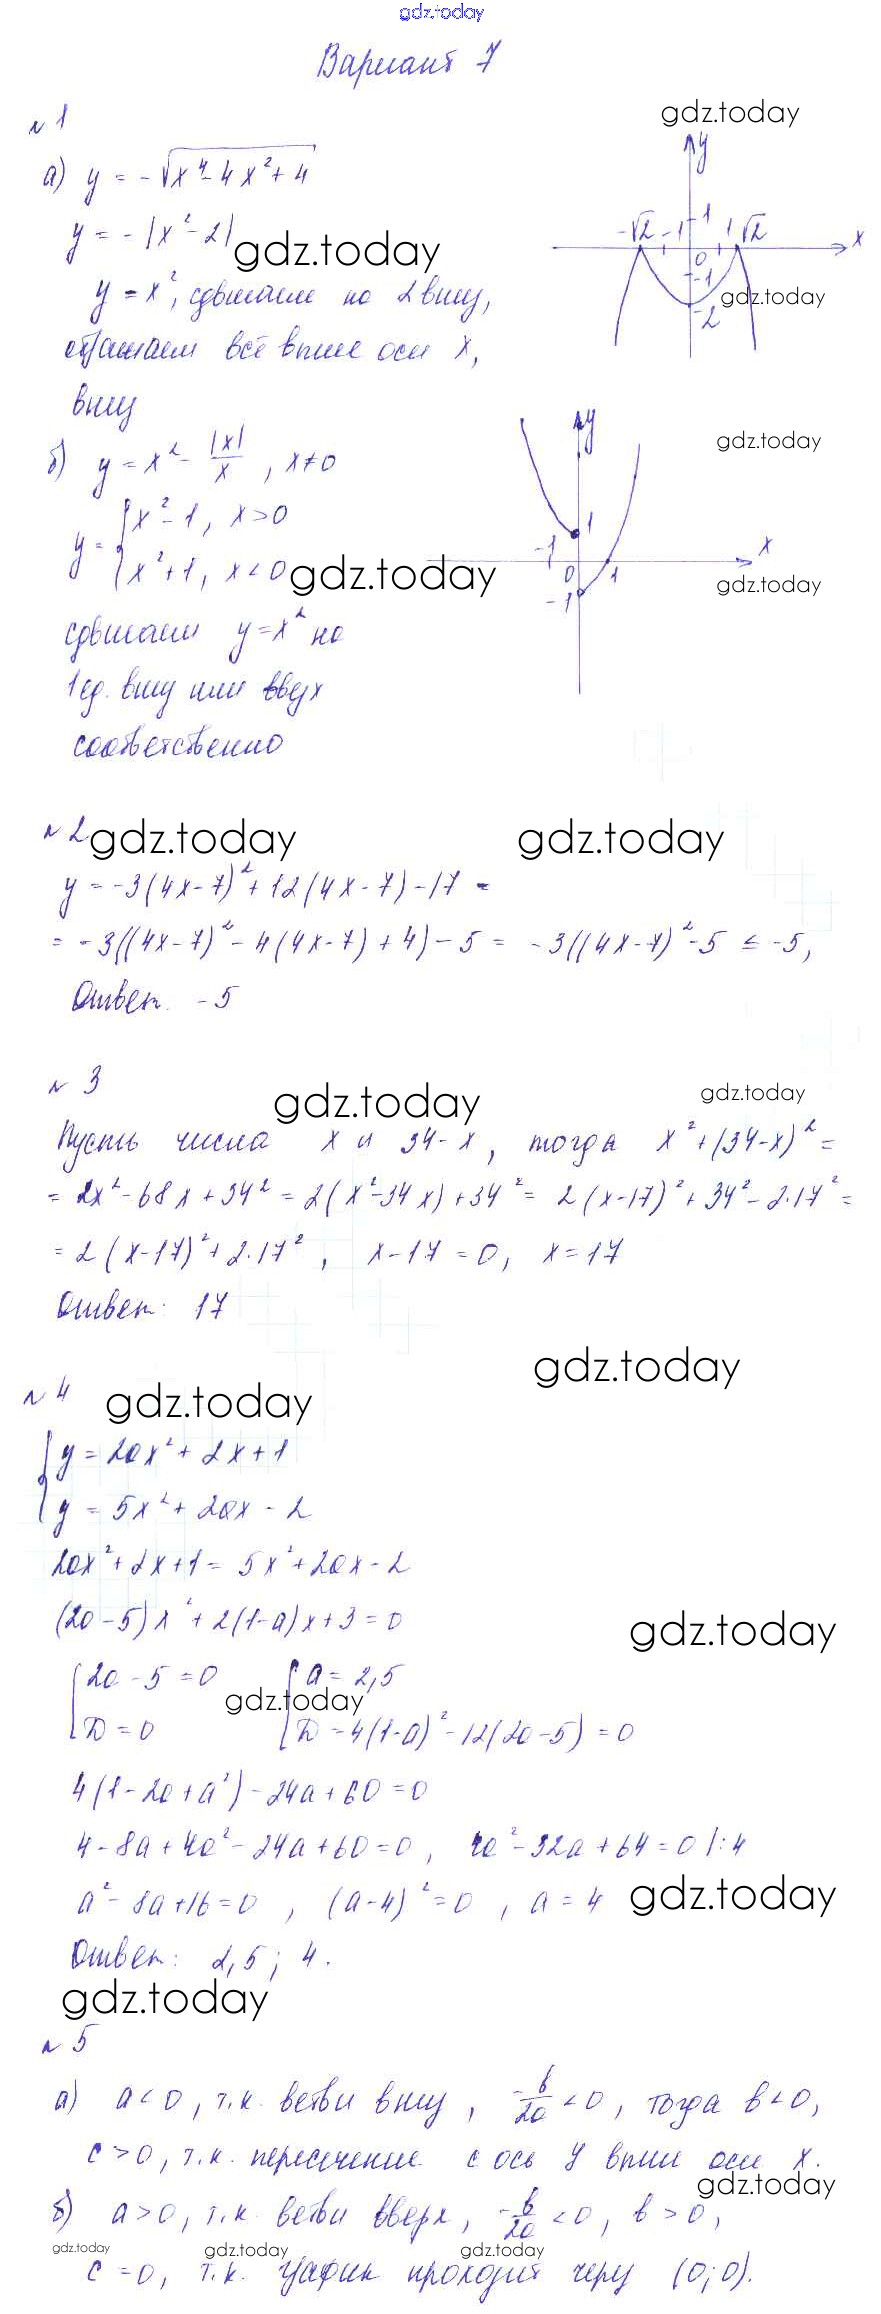 gdz.today
Вариант 7
№ 1
gdz.today
а) y = -√(x⁴-4x²+4)
y = -|x²-2|
gdz.today
y = x², сдвигаем на 2 вниз,
отражаем всё выше оси x,
вниз
y
x
-√2 -1 0 1 √2
1
-1
-2
gdz.today
б) y = x² - |x|/x , x≠0
y = { x²-1, x>0
x²+1, x<0
gdz.today
сдвигаем y=x² на
1 ед. вниз или вверх
соответственно
gdz.today
y
x
1
-1 0 1
-1
gdz.today
№ 2
gdz.today gdz.today
y = -3(4x-7)²+12(4x-7)-17 =
= -3((4x-7)²-4(4x-7)+4)-5 = -3((4x-7)²-5 ≤ -5,
Ответ. -5
№ 3
gdz.today gdz.today
Пусть числа x и 34-x, тогда x²+(34-x)² =
= 2x²-68x+34² = 2(x²-34x)+34² = 2(x-17)²+34²-2·17² =
= 2(x-17)²+2·17² , x-17=0, x=17
Ответ: 17
gdz.today
№ 4
gdz.today
{ y = 2ax²+2x+1
y = 5x²+2ax-2
2ax²+2x+1 = 5x²+2ax-2
(2a-5)x²+2(1-a)x+3=0
gdz.today
[ 2a-5=0 [ a=2,5
gdz.today
D=0 D=4(1-a)²-12(2a-5)=0
4(1-2a+a²)-24a+60=0
4-8a+4a²-24a+60=0, 4a²-32a+64=0 |:4
a²-8a+16=0 , (a-4)²=0 , a=4
gdz.today
Ответ: 2,5; 4.
gdz.today
№ 5
а) a<0, т.к. ветви вниз, -b/2a <0, тогда b<0,
c>0, т.к. пересечение с ось y выше оси x.
gdz.today
б) a>0, т.к. ветви вверх, -b/2a <0, b>0,
gdz.today gdz.today gdz.today
c=0, т.к. график проходит через (0;0).